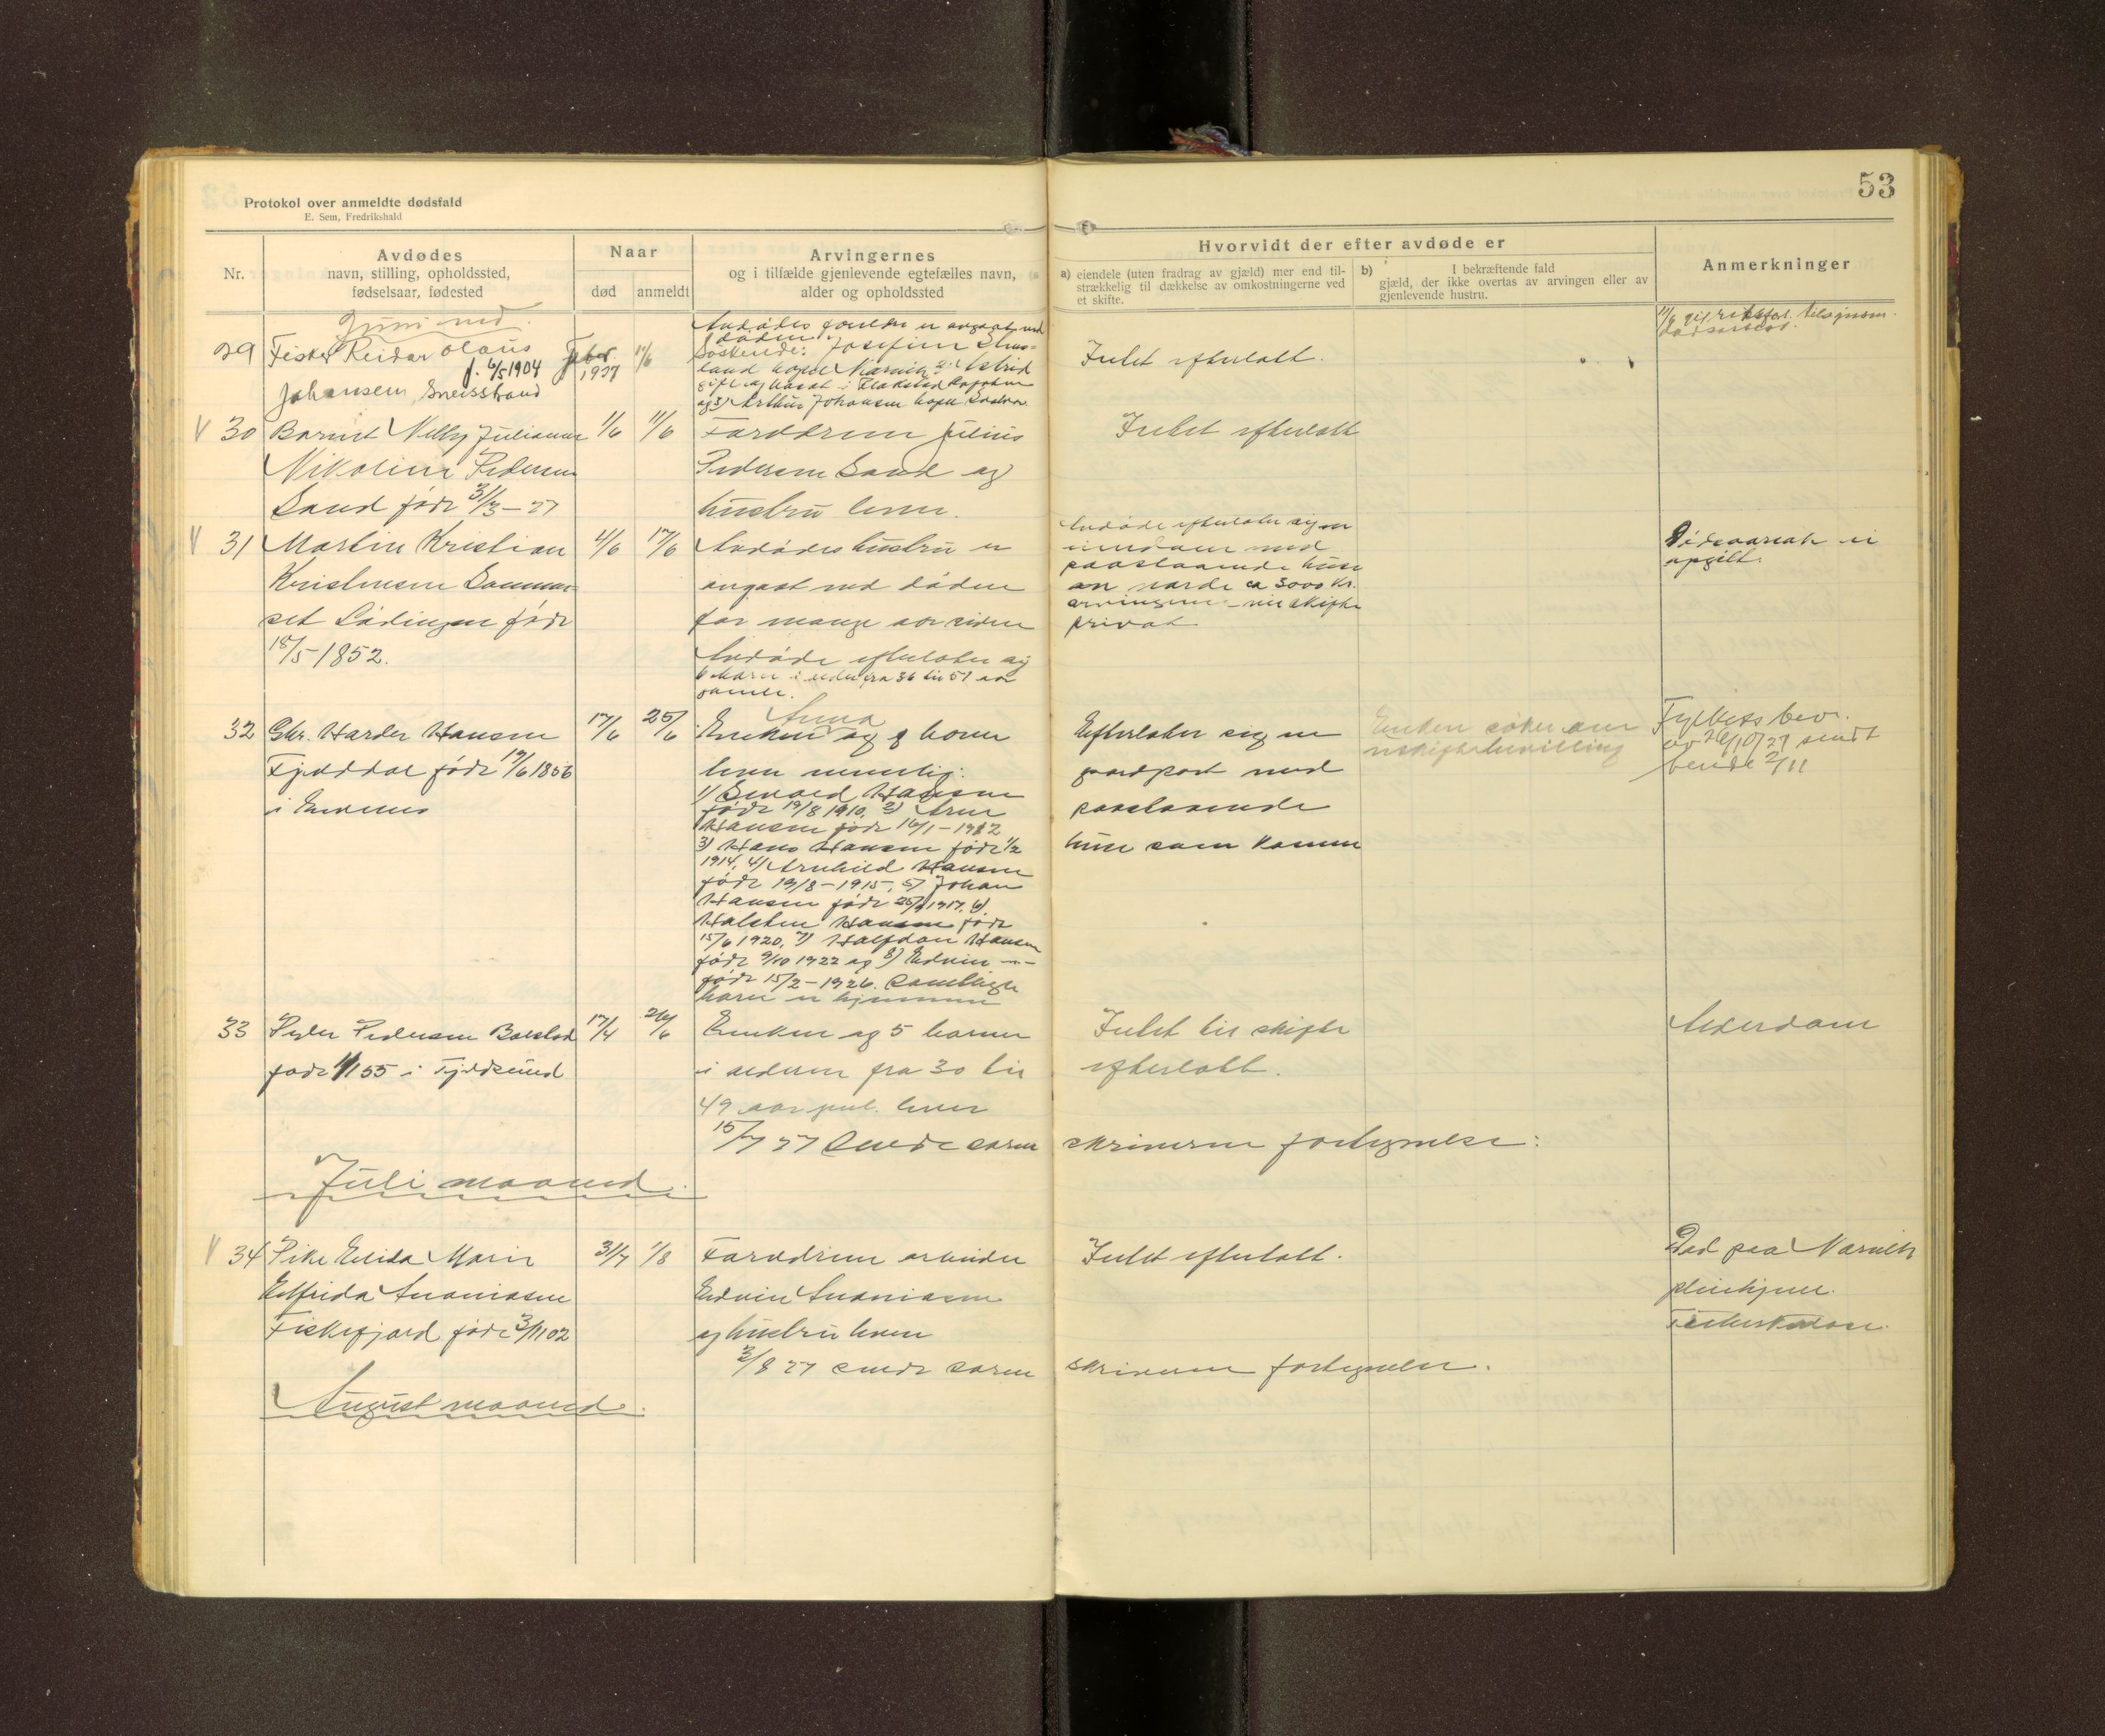 53
Protokol over anmeldte dødsfald
E. Sem, Fredrikshald
Nr.
Avdødes
navn, stilling, opholdssted,
fødselsaar, fødested
Naar
død
anmeldt
Arvingernes
og i tilfælde gjenlevende egtefælles navn,
alder og opholdssted
Hvorvidt der efter avdøde er
a) eiendele (uten fradrag av gjæld) mer end til-
strækkelig til dækkelse av omkostningerne ved
et skifte.
b) I bekræftende fald
gjæld, der ikke overtas av arvingen eller av
gjenlevende hustru.
Anmerkninger
Juni md.
29 Fisker Reidar Olaus
f. 6/5 1904
Johansen,
Febr.
1927
11/6
Avdødes foreldre er avgaat ved
døden.
Søskende: Josefine
gift og bosat i Flakstad Lofoten
og 3) Arthur Johansen
Intet efterlatt.
30 Barnet Nelly Julianne
Nikoline Pedersen
Sand født 31/3-27
1/6
11/6
Forældrene Julius
Pedersen Sand og
hustru lever.
Intet efterlatt
31 Martin Kristian
Kristensen Sommer-
set Lødingen født
18/5 1852.
4/6
17/6
Avdødes hustru er
avgaat ved døden
for mange aar siden
Avdøde efterlater sig
6 barn i alder fra 36 til 51 aar
gamle.
Avdøde efterlater sig en
eiendom med
paastaaende huse
av værde ca 3000 kr.
arvingerne vil skifte
privat
ei
opgitt.
32 Chr. Harder Hansen
Fjelddal født 19/6 1856
i Evenes
17/6
25/6
Anna
Enken og 8 barn
lever nemlig:
1) Sevald Hansen
født 19/8 1910, 2) Arne
Hansen født 16/1-1912
3) Hans Hansen født 1/2
1914, 4) Arnhild Hansen
født 19/8-1915, 5) Johan
Hansen født 1917, 6)
Halsten Hansen født
15/6 1920, 7) Halfdan Hansen
født 9/10 1922 og 8) Edvin -"-
født 15/2-1926. Samtlige
barn er hjemme
Efterlater sig en
gardpart med
paastaaende
huse som
Enken søker om
uskiftebevilling
Fylkets bev.
av 26/10/27 sendt
2/11
33 Peder Pedersen
født 55 i Tjeldsund
17/4
26/6
Enken og 5 barn
i alderen fra 30 til
49 aar gml. lever
Intet til skifte
efterlatt.
Alderdom
15/7 27 sendt soren
skriveren fortegnelse:
Juli maaned
34 Pike Elida Marie
Elfrida Ananiasen
Fiskefjord født 3/11 02
31/7
1/8
Forældrene arbeider
Edvin Ananiasen
og hustru lever
Intet efterlatt.
Død paa Narvik
pleiehjem.
3/8 27 sendt soren
skriveren fortegnelse.
August maaned.